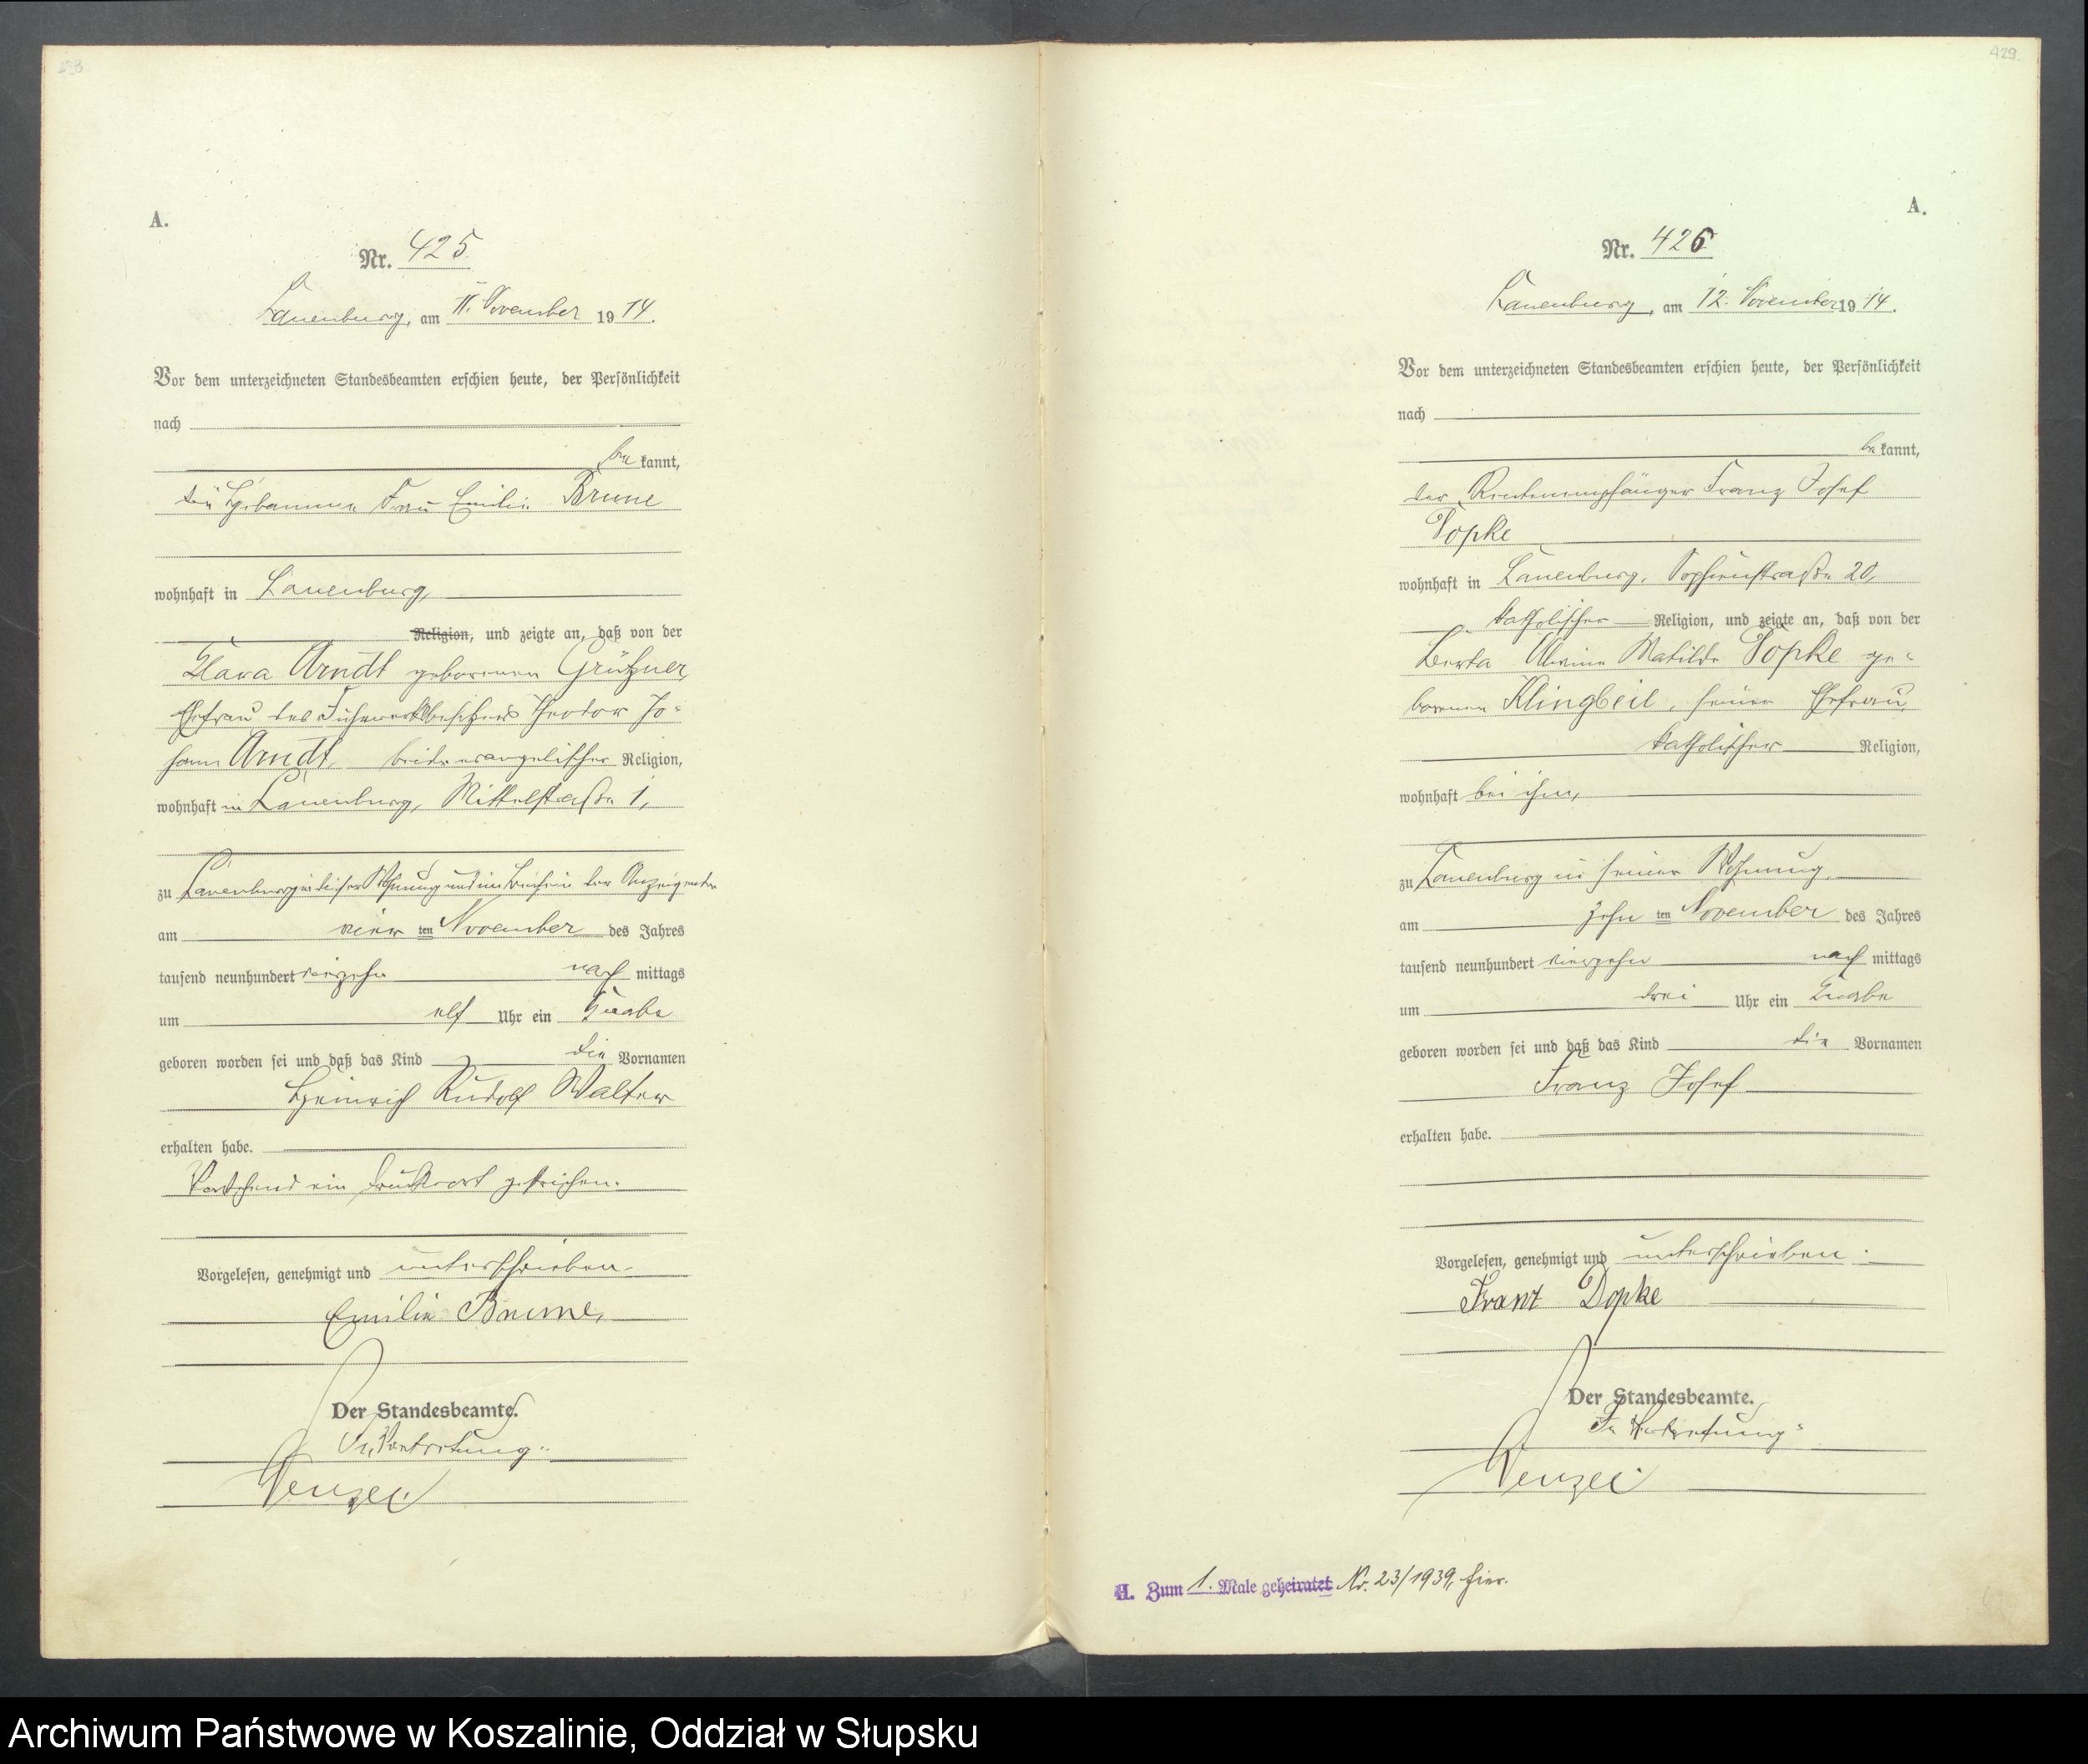 A.
Nr. 425.
Lauenburg, am 11. November 1914.
Vor dem unterzeichneten Standesbeamten erschien heute, der Persönlichkeit
nach
be kannt,
die Hebamme Frau Emilie Brune
wohnhaft in Lauenburg,
Religion, und zeigte an, daß von der
Klara Arndt geborenen Grützner,
Ehefrau des Fuhrwerksbesitzers Theodor Jo-
hann Arndt, beide evangelischer Religion,
wohnhaft in Lauenburg, Mittelstraße 1,
zu Lauenburg in dieser Wohnung und im Beisein der Anzeigenden
am vier ten November des Jahres
tausend neunhundert vierzehn nach mittags
um elf Uhr ein Knabe
geboren worden sei und daß das Kind die Vornamen
Heinrich Rudolf Walter
erhalten habe.
Vorstehend ein Druckwort gestrichen.
Vorgelesen, genehmigt und unterschrieben.
Emilie Brune,
Der Standesbeamte.
In Vertretung:
Wenzel.
429.
A.
Nr. 426
Lauenburg, am 12. November 1914.
Vor dem unterzeichneten Standesbeamten erschien heute, der Persönlichkeit
nach
be kannt,
der Rentenempfänger Franz Josef
Dopke
wohnhaft in Lauenburg, Sophienstraße 20,
katholischer Religion, und zeigte an, daß von der
Berta Alwine Matilde Dopke ge-
borenen Klingbeil, seiner Ehefrau,
katholischer Religion,
wohnhaft bei ihm,
zu Lauenburg in seiner Wohnung,
am zehn ten November des Jahres
tausend neunhundert vierzehn nach mittags
um drei Uhr ein Knabe
geboren worden sei und daß das Kind die Vornamen
Franz Josef
erhalten habe.
Vorgelesen, genehmigt und unterschrieben.
Franz Dopke
Der Standesbeamte.
In Vertretung:
Wenzel.
H. Zum 1. Male geheiratet Nr. 23/1939, hier.
Archiwum Państwowe w Koszalinie, Oddział w Słupsku